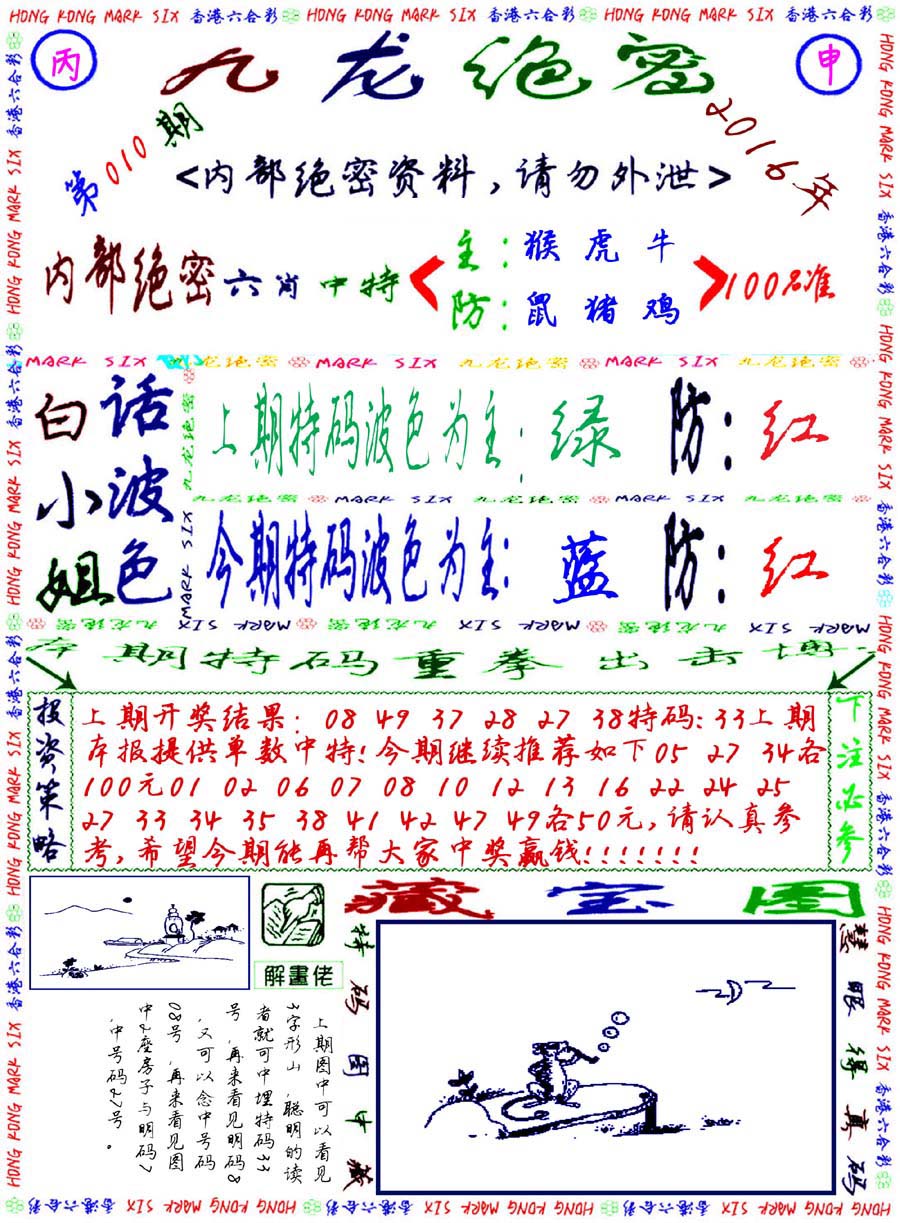 HONG KONG MARK SIX 香港六合彩 HONG KONG MARK SIX 香港六合彩 HONG KONG MARK SIX 香港六合彩
丙
九龙绝密
申
第010期
2016年
<内部绝密资料,请勿外泄>
内部绝密六肖中特
主:猴虎牛
防:鼠猪鸡
100%准
MARK SIX 九龙绝密 MARK SIX 九龙绝密 MARK SIX 九龙绝密
白话
小波
姐色
上期特码波色为主:绿 防:红
九龙绝密 MARK SIX 九龙绝密 MARK SIX 九龙绝密
今期特码波色为主:蓝 防:红
MARK SIX 九龙绝密 MARK SIX 九龙绝密 MARK SIX 九龙绝密
本期特码重拳出击博
投资策略
上期开奖结果: 08 49 37 28 27 38特码:33上期
本报提供单数中特!今期继续推荐如下05 27 34各
100元01 02 06 07 08 10 12 13 16 22 24 25
27 33 34 35 38 41 42 47 49各50元,请认真参
考,希望今期能再帮大家中奖赢钱!!!!!!!
下注必参
藏宝图
解畫佬
特码图中藏
慧眼得真码
上期图中可以看见
3字形山,聪明的读
者就可中埋特码33
号,再来看见明码8
,又可以念中号码
08号,再来看见图
中2座房子与明码7
,中号码27号。
HONG KONG MARK SIX 香港六合彩 HONG KONG MARK SIX 香港六合彩 HONG KONG MARK SIX 香港六合彩